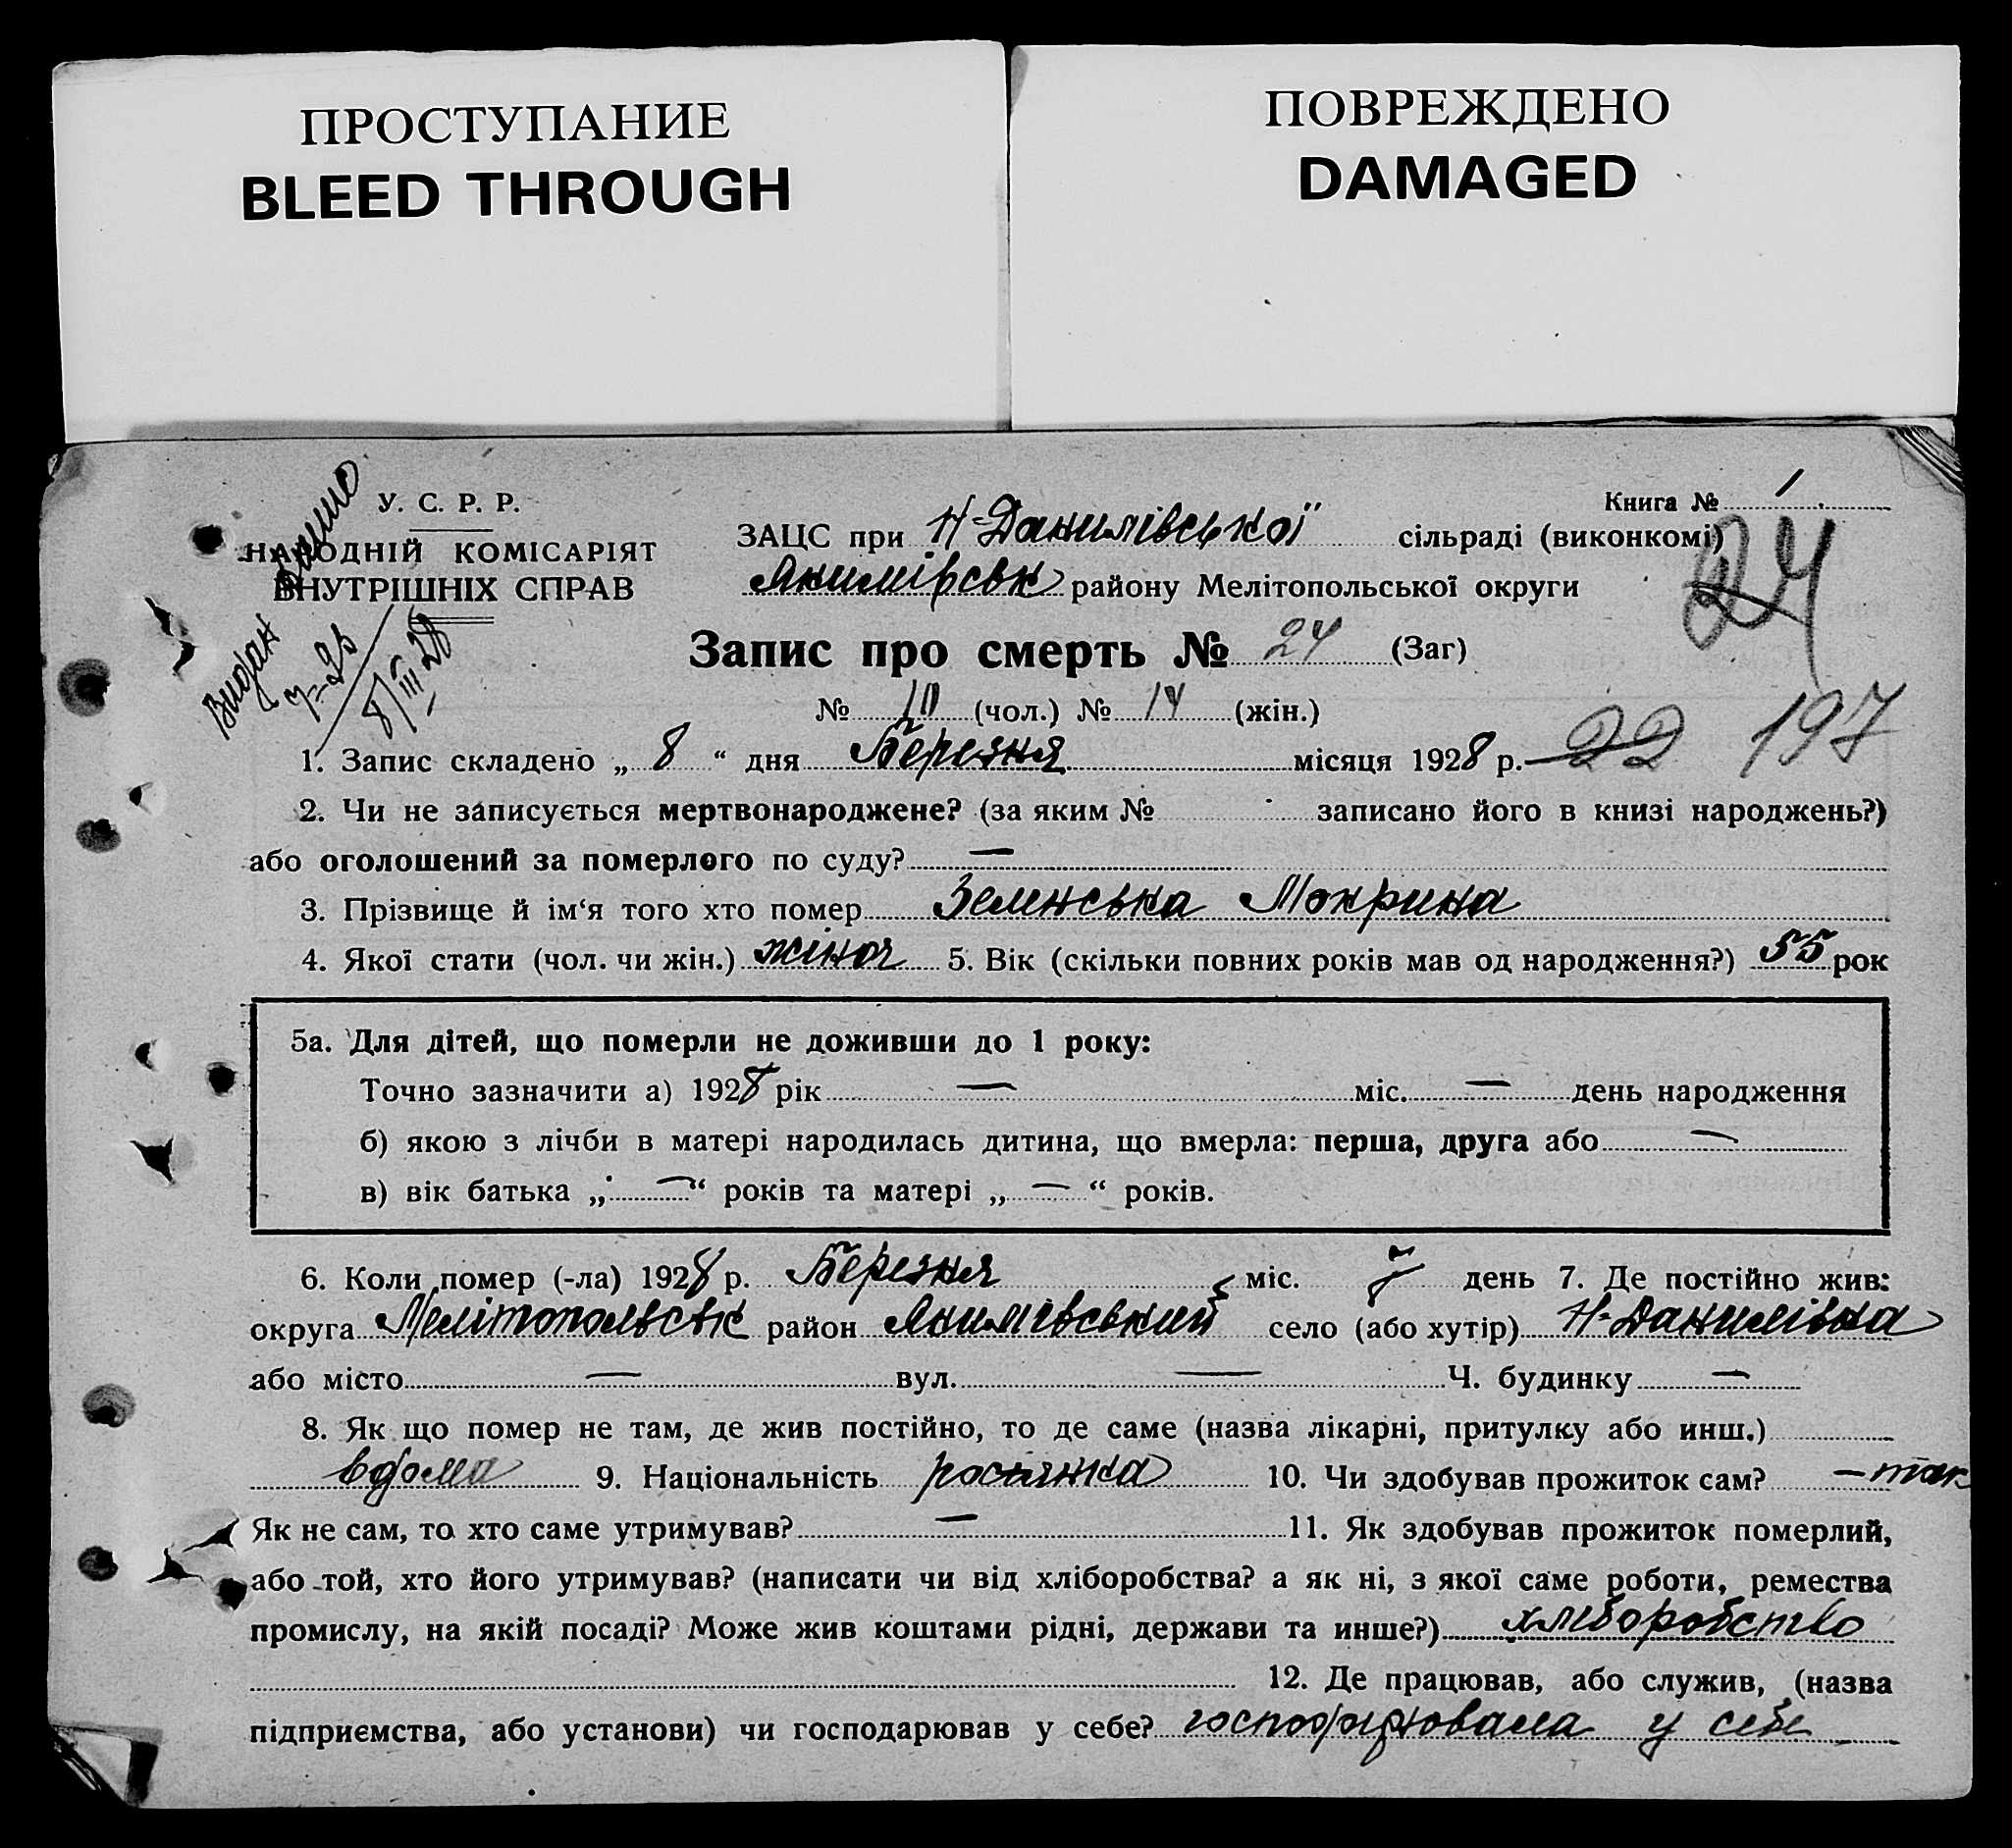 ПРОСТУПАНИЕ
BLEED THROUGH
ПОВРЕЖДЕНО
DAMAGED
У. С. Р. Р.
НАРОДНІЙ КОМІСАРІЯТ
ВНУТРІШНІХ СПРАВ
Видан
8/III 28
Книга № 1
ЗАЦС при Н-Данилівської сільраді (виконкомі)
Якимівськ району Мелітопольської округи
24
Запис про смерть № 24 (Заг)
№ 10 (чол.) № 14 (жін.)
1. Запис складено „ 8 “ дня Березня місяця 1928 р. 22 197
2. Чи не записується мертвонароджене? (за яким № записано його в книзі народжень?)
або оголошений за померлого по суду? —
3. Прізвище й ім‘я того хто помер Зеленська Мокрина
4. Якої стати (чол. чи жін.) жіноч 5. Вік (скільки повних років мав од народження?) 55 рок
5а. Для дітей, що померли не доживши до 1 року:
Точно зазначити а) 1928 рік — міс. — день народження
б) якою з лічби в матері народилась дитина, що вмерла: перша, друга або —
в) вік батька „ — “ років та матері „ — “ років.
6. Коли помер (-ла) 1928 р. Березня міс. 7 день 7. Де постійно жив:
округа Мелітопольськ район Якимівський село (або хутір) Н-Данилівка
або місто — вул. — Ч. будинку —
8. Як що помер не там, де жив постійно, то де саме (назва лікарні, притулку або инш.)
вдома 9. Національність росіянка 10. Чи здобував прожиток сам? — так
Як не сам, то хто саме утримував? — 11. Як здобував прожиток померлий,
або той, хто його утримував? (написати чи від хліборобства? а як ні, з якої саме роботи, ремества
промислу, на якій посаді? Може жив коштами рідні, держави та инше?) хліборобство
12. Де працював, або служив, (назва
підприємства, або установи) чи господарював у себе? господарювала у себе